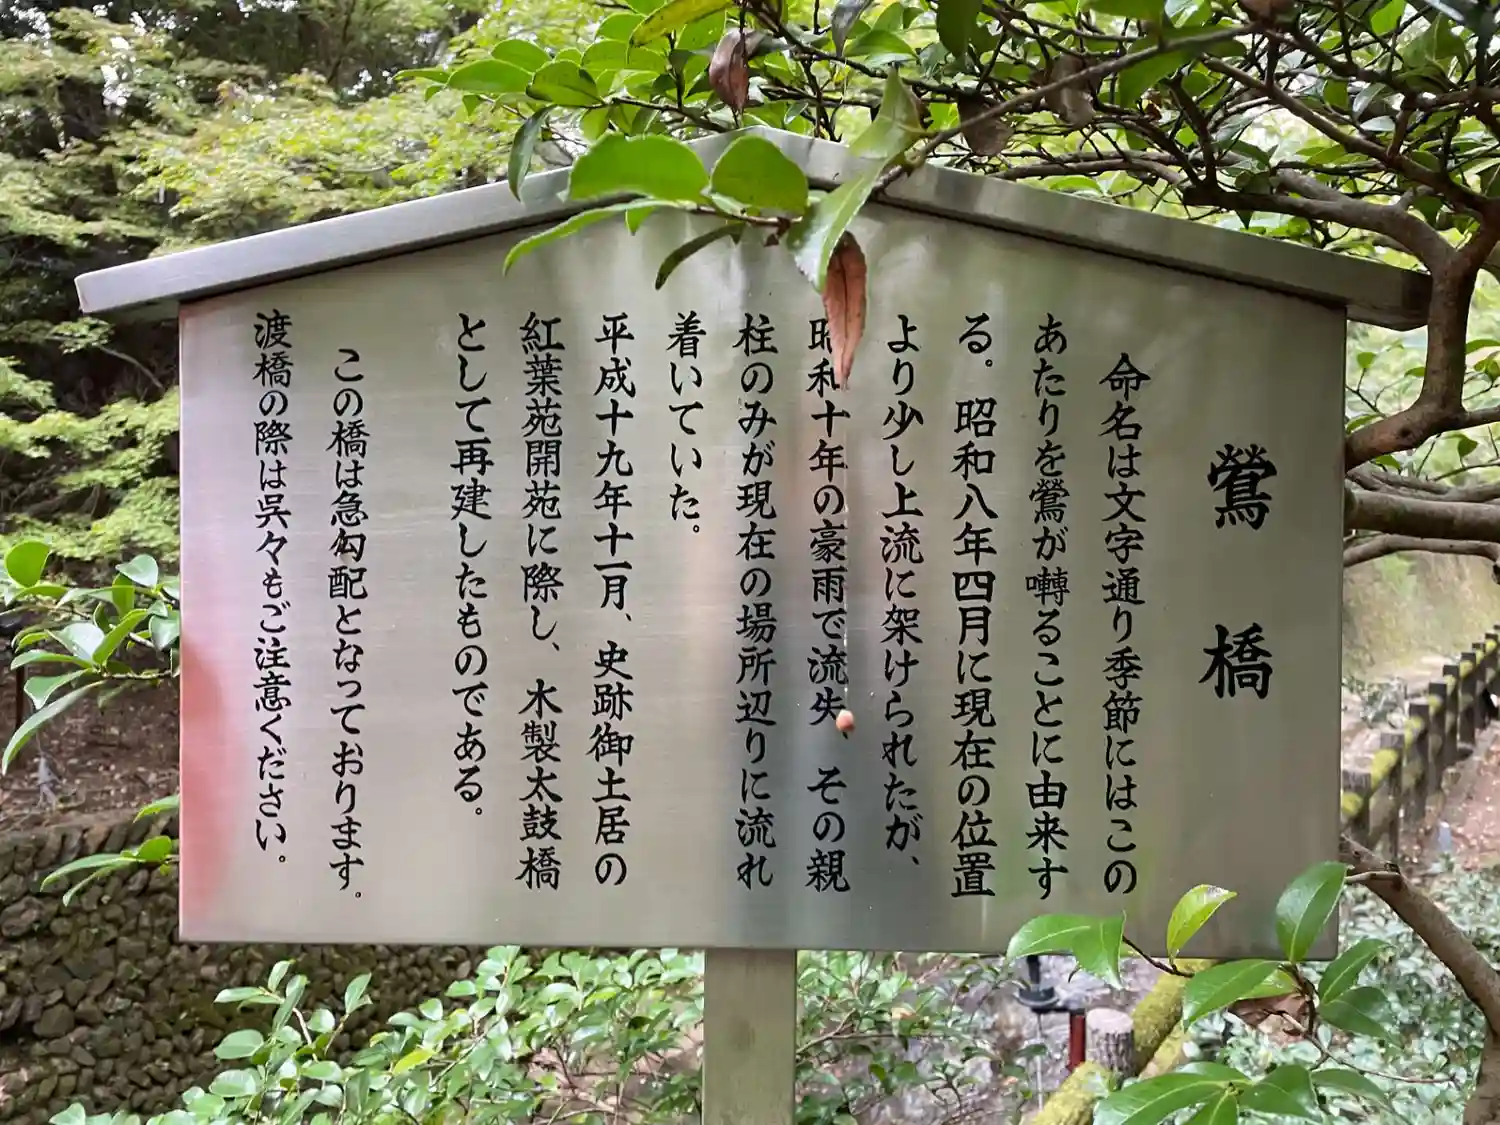 鶯橋
命名は文字通り季節にはこの
あたりを鶯が囀ることに由来す
る。昭和八年四月に現在の位置
より少し上流に架けられたが、
昭和十年の豪雨で流失、その親
柱のみが現在の場所辺りに流れ
着いていた。
平成十九年十一月、史跡御土居の
紅葉苑開苑に際し、木製太鼓橋
として再建したものである。
この橋は急勾配となっております。
渡橋の際は呉々もご注意ください。